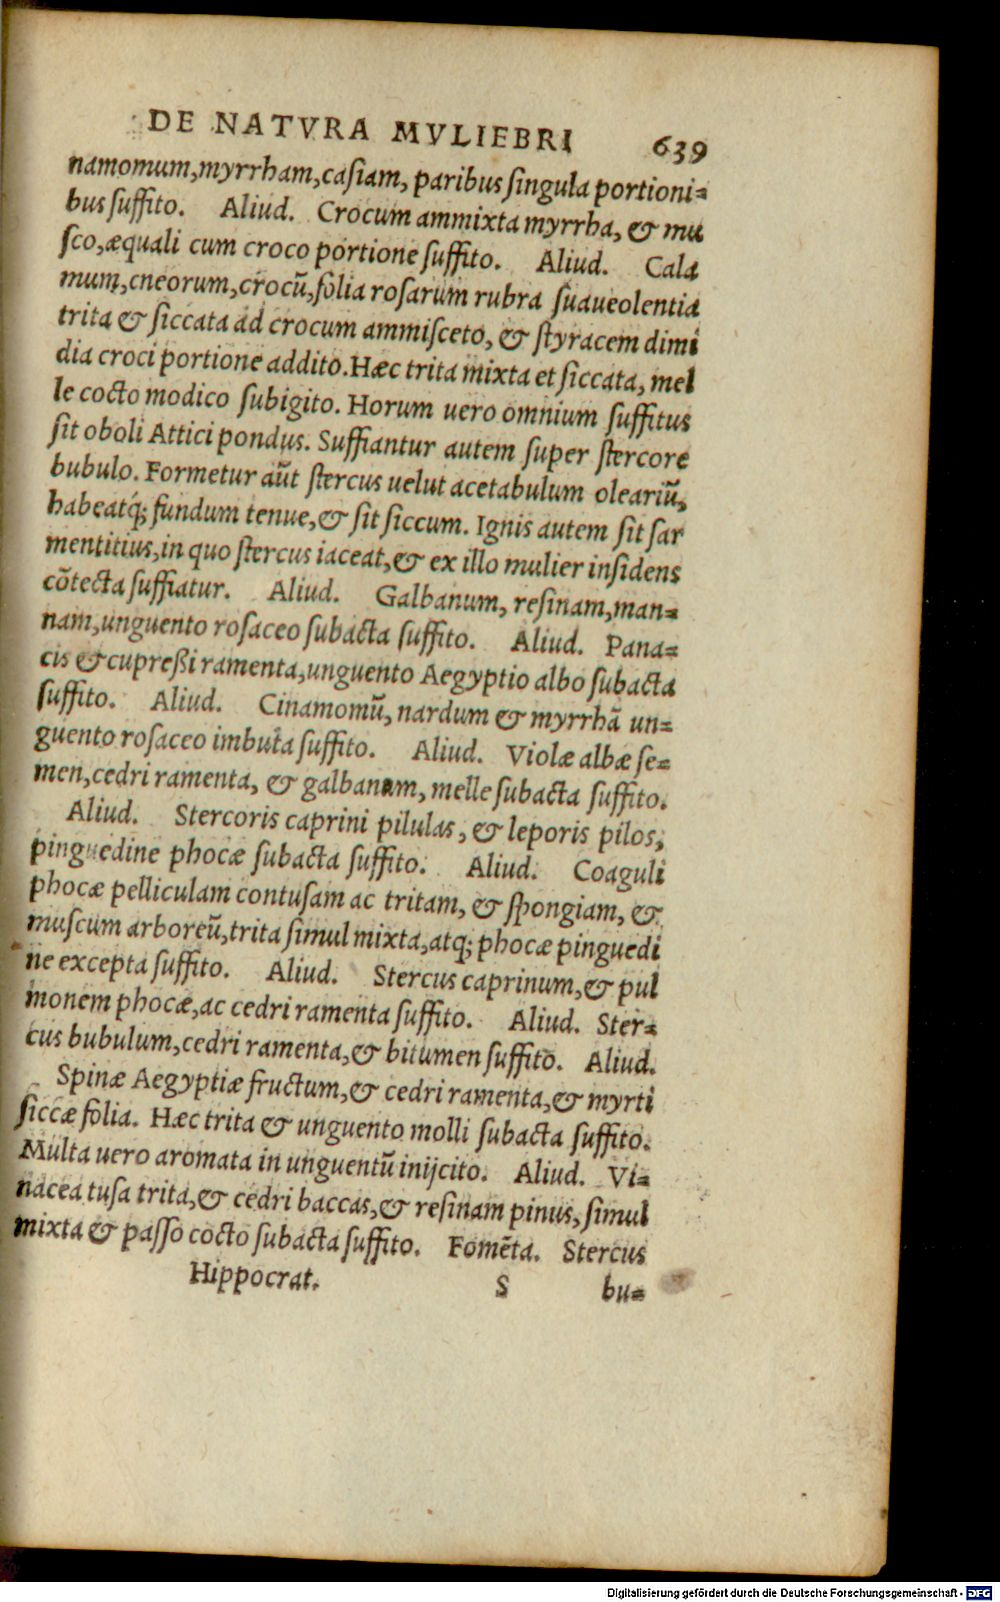 DE NATVRA MVLIEBRI 639
namomum,myrrham,casiam, paribus singula portioni=
bus suffito. Aliud. Crocum ammixta myrrha, & mu
sco,æquali cum croco portione suffito. Aliud. Cala
mum,cneorum,crocũ,folia rosarum rubra suaueolentia
trita & siccata ad crocum ammisceto, & styracem dimi
dia croci portione addito.Hæc trita mixta et siccata, mel
le cocto modico subigito. Horum uero omnium suffitus
sit oboli Attici pondus. Suffiantur autem super stercore
bubulo. Formetur aũt stercus uelut acetabulum oleariũ,
habeatq́; fundum tenue,& sit siccum. Ignis autem sit sar
mentitius,in quo stercus iaceat,& ex illo mulier insidens
cõtecta suffiatur. Aliud. Galbanum, resinam,man=
nam,unguento rosaceo subacta suffito. Aliud. Pana=
cis & cupreßi ramenta,unguento Aegyptio albo subacta
suffito. Aliud. Cinamomũ, nardum & myrrhã un=
guento rosaceo imbuta suffito. Aliud. Violæ albæ se=
men,cedri ramenta, & galbanum, melle subacta suffito.
Aliud. Stercoris caprini pilulas, & leporis pilos,
pinguedine phocæ subacta suffito. Aliud. Coaguli
phocæ pelliculam contusam ac tritam, & spongiam, &
muscum arboreũ,trita simul mixta,atq; phocæ pinguedi
ne excepta suffito. Aliud. Stercus caprinum,& pul
monem phocæ,ac cedri ramenta suffito. Aliud. Ster=
cus bubulum,cedri ramenta,& bitumen suffito. Aliud.
Spinæ Aegyptiæ fructum,& cedri ramenta,& myrti
siccæ folia. Hæc trita & unguento molli subacta suffito.
Multa uero aromata in unguentũ inijcito. Aliud. Vi=
nacea tusa trita,& cedri baccas,& resinam pinus, simul
mixta & passo cocto subacta suffito. Fomẽta. Stercus
Hippocrat. S bu=
Digitalisierung gefördert durch die Deutsche Forschungsgemeinschaft - DFG